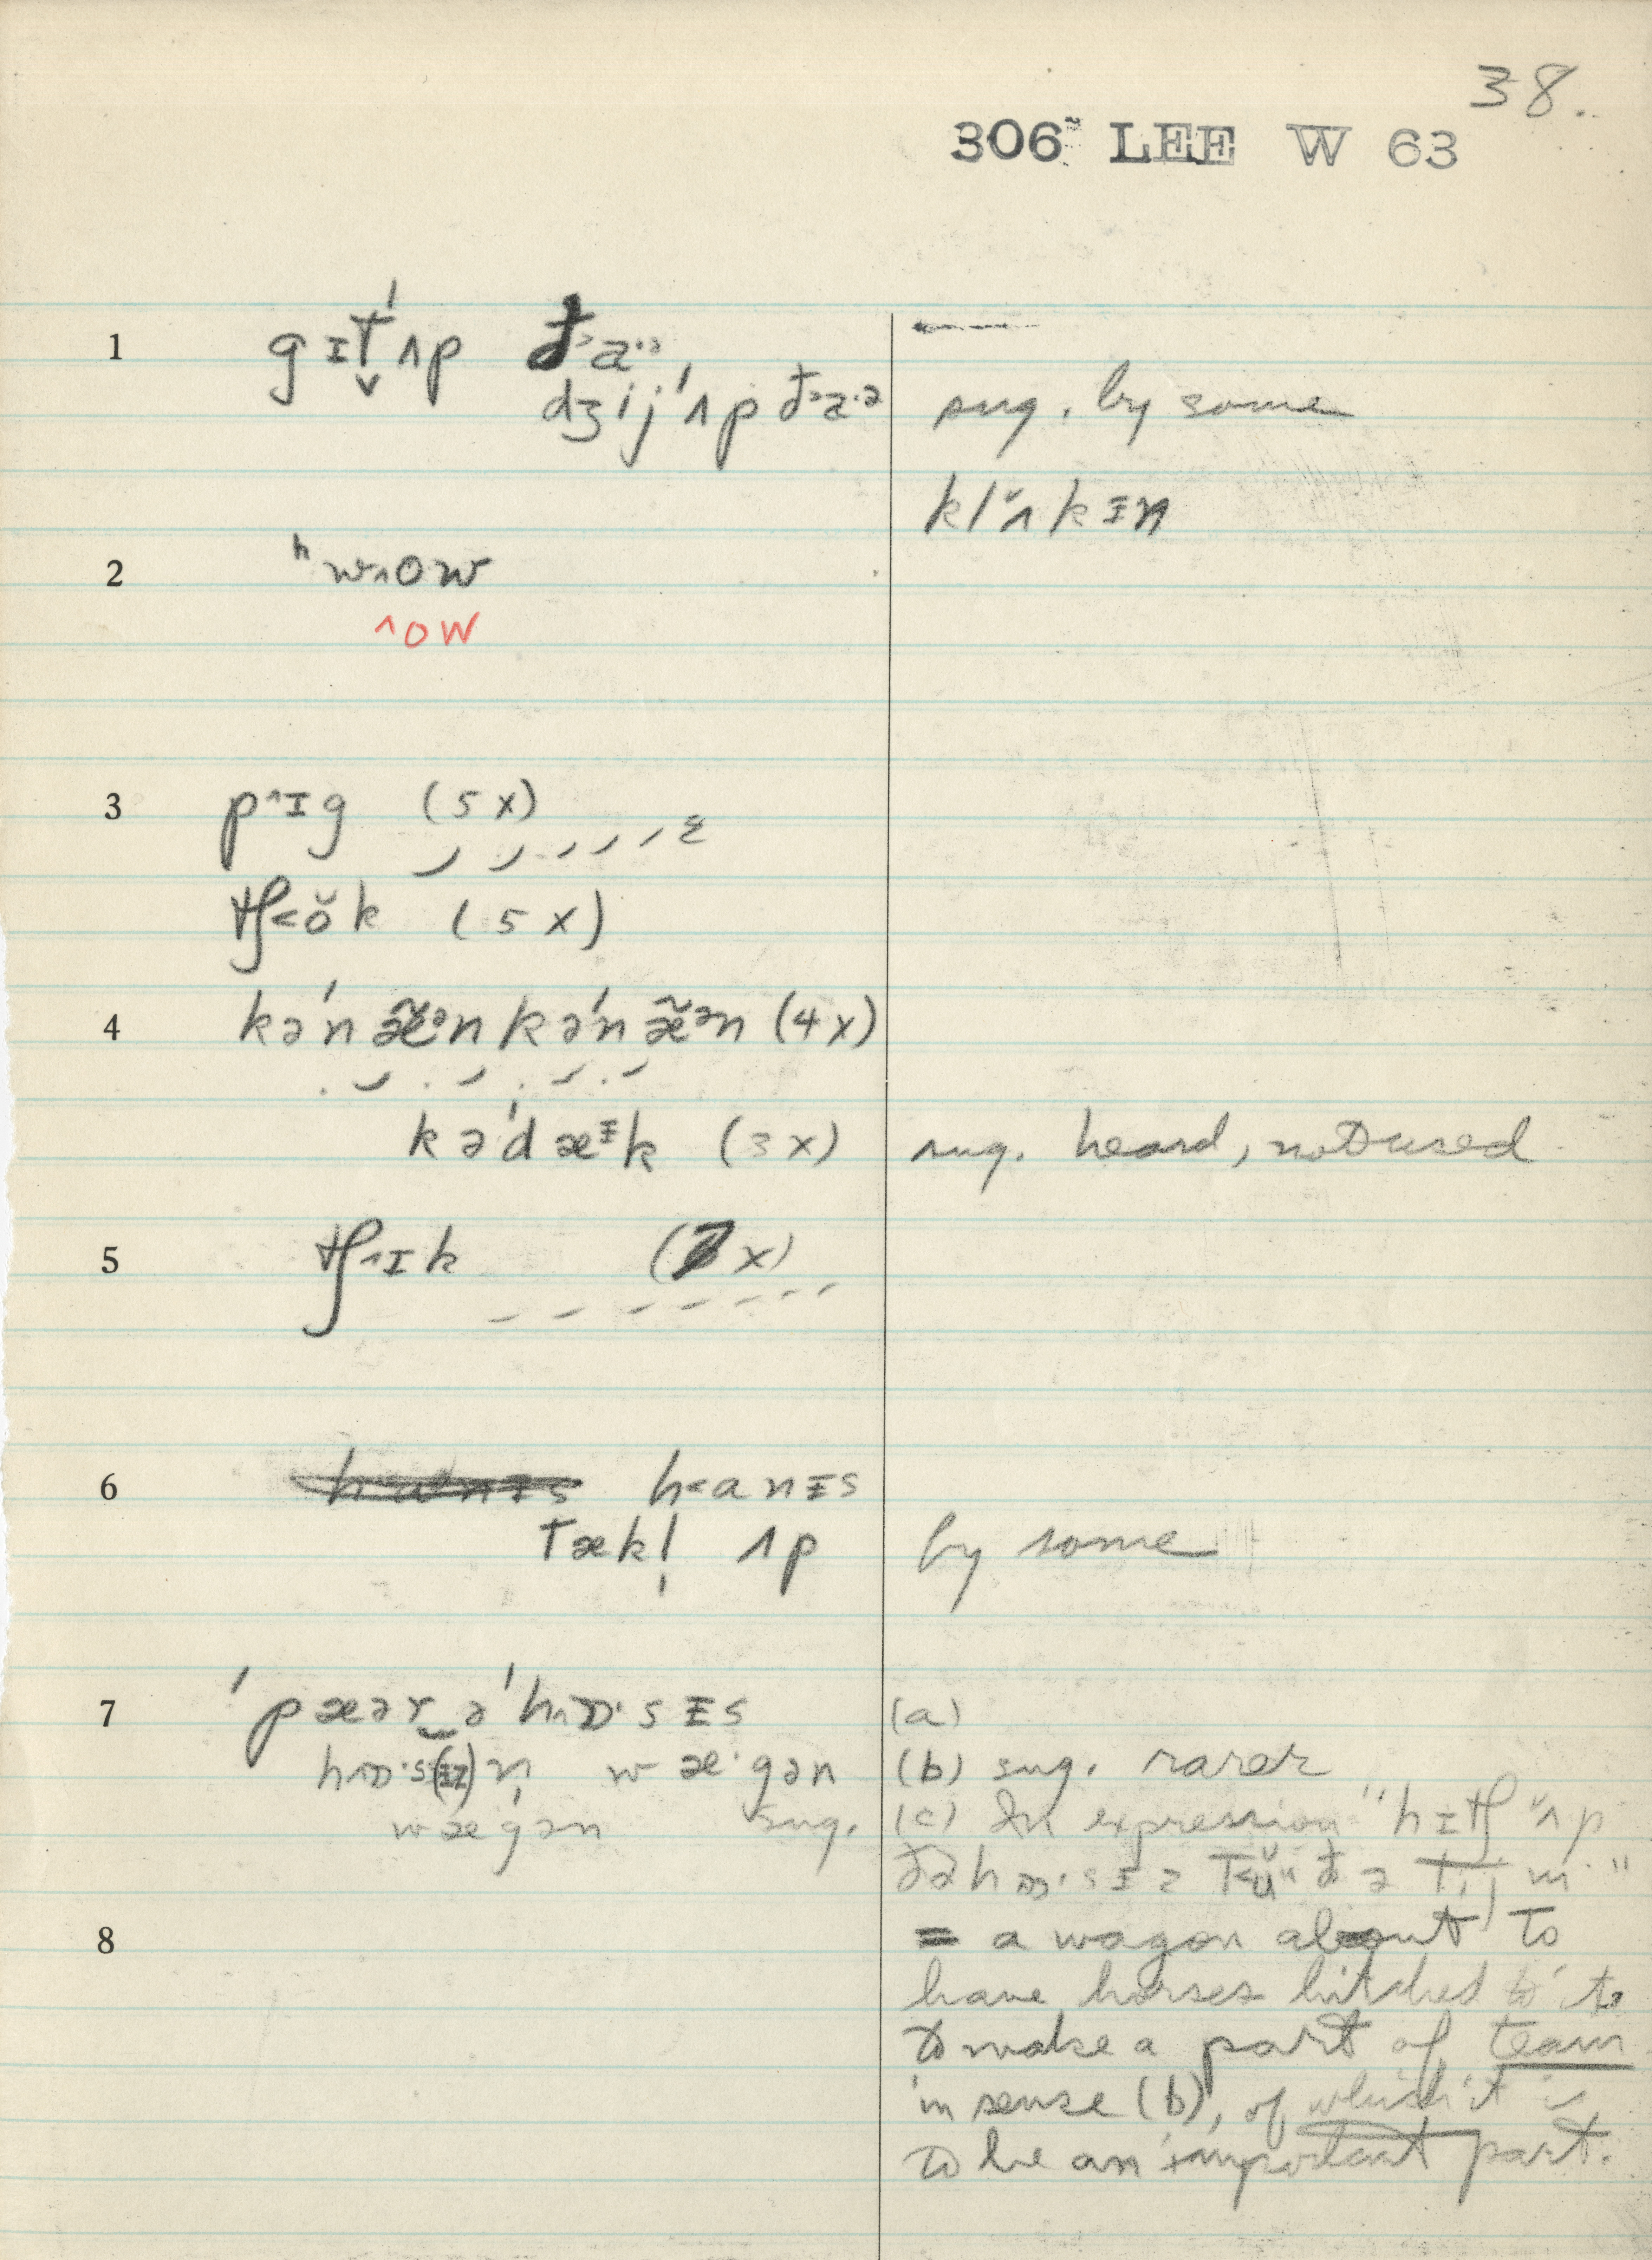 38.
306~ LEE W 63
1 gɪt̬ˈʌp ð˃a·ə
dʒijˈʌp ð˃a·ə sug. by some
klʌ̆kɪn
2 ʰw^ow
^ow
3 p^ɪg (5x)
tʃ<ŏk (5x)
4 kəˈnæ̃ᵊn kəˈnæ̃ᵊn (4x)
kəˈdæɪk (3x) sug. heard, not used
5 tʃ^ɪk (7x)
6 h<anɪs
tækl̩ ʌp by some
7 ˈpæər‿əˈh^ɒ·sɪs (a)
h^ɒ·s(ɪz)n̩ wæ·gən (b) sug. rarer
wægən sug. (c) In expression "hɪtʃ ʌ̆p
ðəhɒ·sɪz t<ŭ ðə tijm"
= a wagon about to
8 have horses hitched to it
to make a part of team
in sense (b), of which it is
to be an important part.